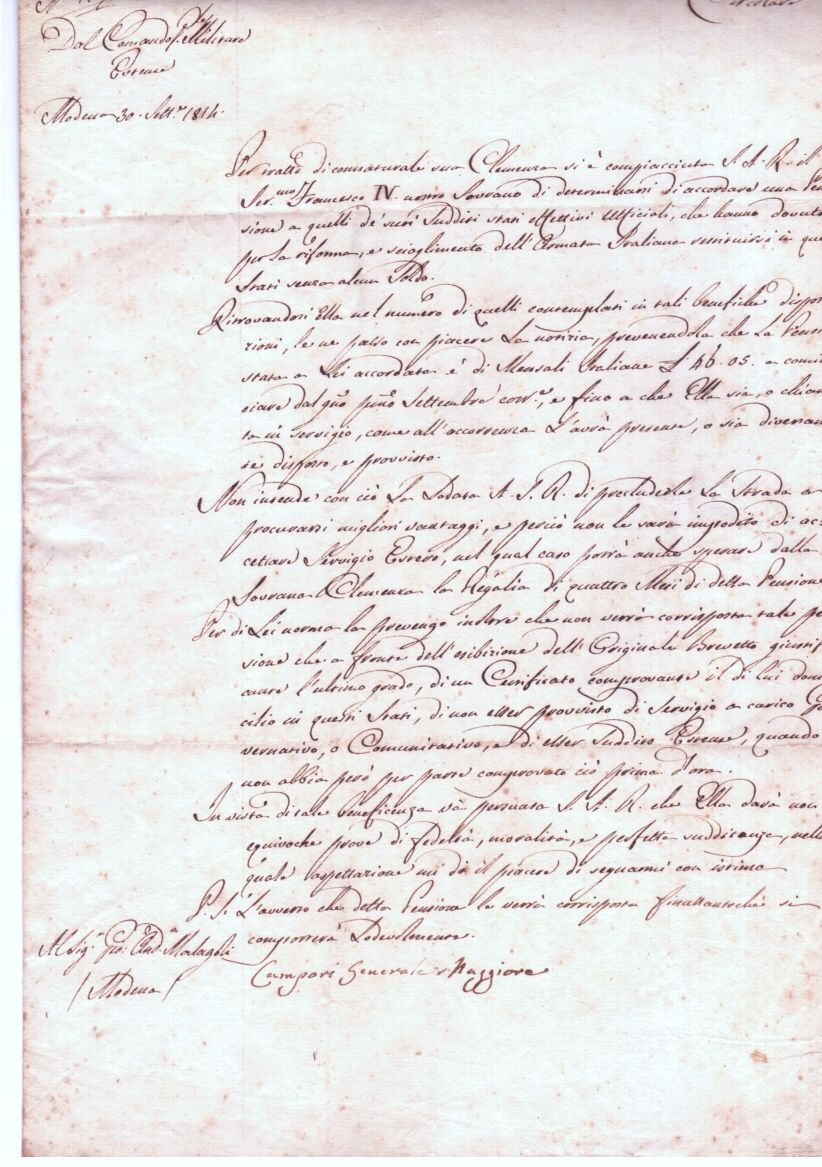 Circolare
Dal Comando Gle Militare
Estense
Modena 30. Sett.e 1814.
Per tratto di connaturale sua Clemenza si è compiacciuta S. A. R. il
Ser.mo Francesco IV. nostro Sovrano di determinarsi di accordare una Pen
sione a quelli de' suoi Sudditi stati effettivi Ufficiali, che hanno dovuto
per la riforma, e scioglimento dell'Armata Italiana restituirsi in que
Stati senza alcun Soldo.
Ritrovandosi Ella nel numero di quelli contemplati in tali benefiche dispos
zioni, le ne passo con piacere la notizia, prevenendola che la Pensi
stata a Lei accordata è di Mensali Italiane £ 46. 05. a comin
ciare dal gno pmo Settembre corr.e, e fino a che Ella sia, o chiam
ta in servigio, come all'accorrenza L'avrà presente, o sia diversam
te disposto, e provvisto.
Non intende con ciò la Lodata A. S. R. di precluderle la Strada a
procurarsi migliori vantaggi, e perciò non le sarà impedito di ac=
cettare Servigio Estero, nel qual caso potrà anche sperare dalla
Sovrana Clemenza la Regalia di quattro Mesi di detta Pensione
Per di Lei norma la prevengo inoltre che non verrà corrisposta tale pe
sione che a fronte dell'esibizione dell'Originale Brevetto giustif
cante l'ultimo grado, di un Certificato comprovante il di lui domi
cilio in questi Stati, di non esser provvisto di Servigio a carico Go
vernativo, o Comunitativo, e di esser Suddito Estense, quando
non abbia però per parte comprovato ciò prima d'ora.
In vista di tale beneficenza và persuasa S. A. R. che Ella darà non
equivoche prove di fedeltà, moralità, e perfetta sudditanza, nella
quale aspettazione mi dò il piacere di segnarmi con istima
P. S. L'avverto che detta Pensione le verrà corrisposta finattantochè si
comporterà Lodevolmente.
Al Sig.r Malagoli
/ Modena /
Campori Generale Maggiore